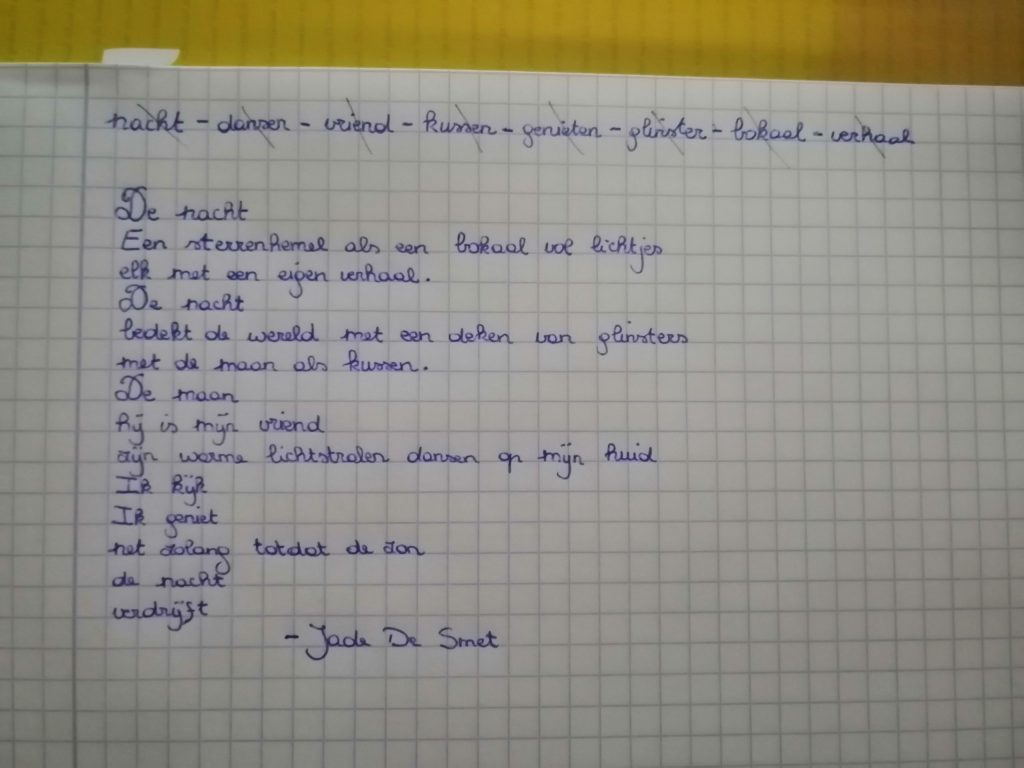 nacht - dansen - vriend - kussen - genieten - glinster - bokaal - verhaal
De nacht
Een sterrenhemel als een bokaal vol lichtjes
elk met een eigen verhaal.
De nacht
bedekt de wereld met een deken van glinsters
met de maan als kussen.
De maan
hij is mijn vriend
zijn warme lichtstralen dansen op mijn huid
Ik kijk
Ik geniet
net zolang totdat de zon
de nacht
verdrijft
- Jade De Smet